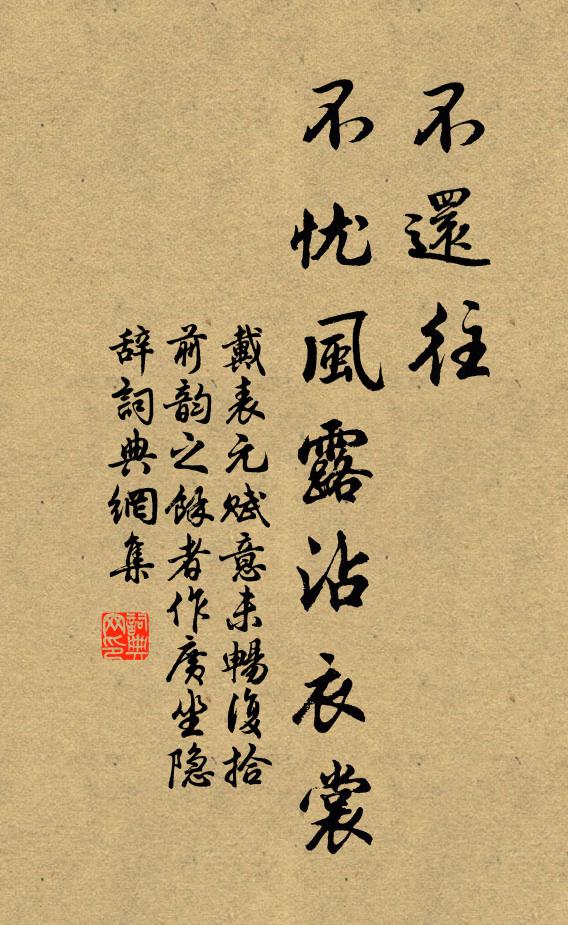 不還往
不忧風露沾衣裳
戴表元赋意未暢復拾
前韵之餘者作廣坐隐
辞詞典網集
詞典
网印